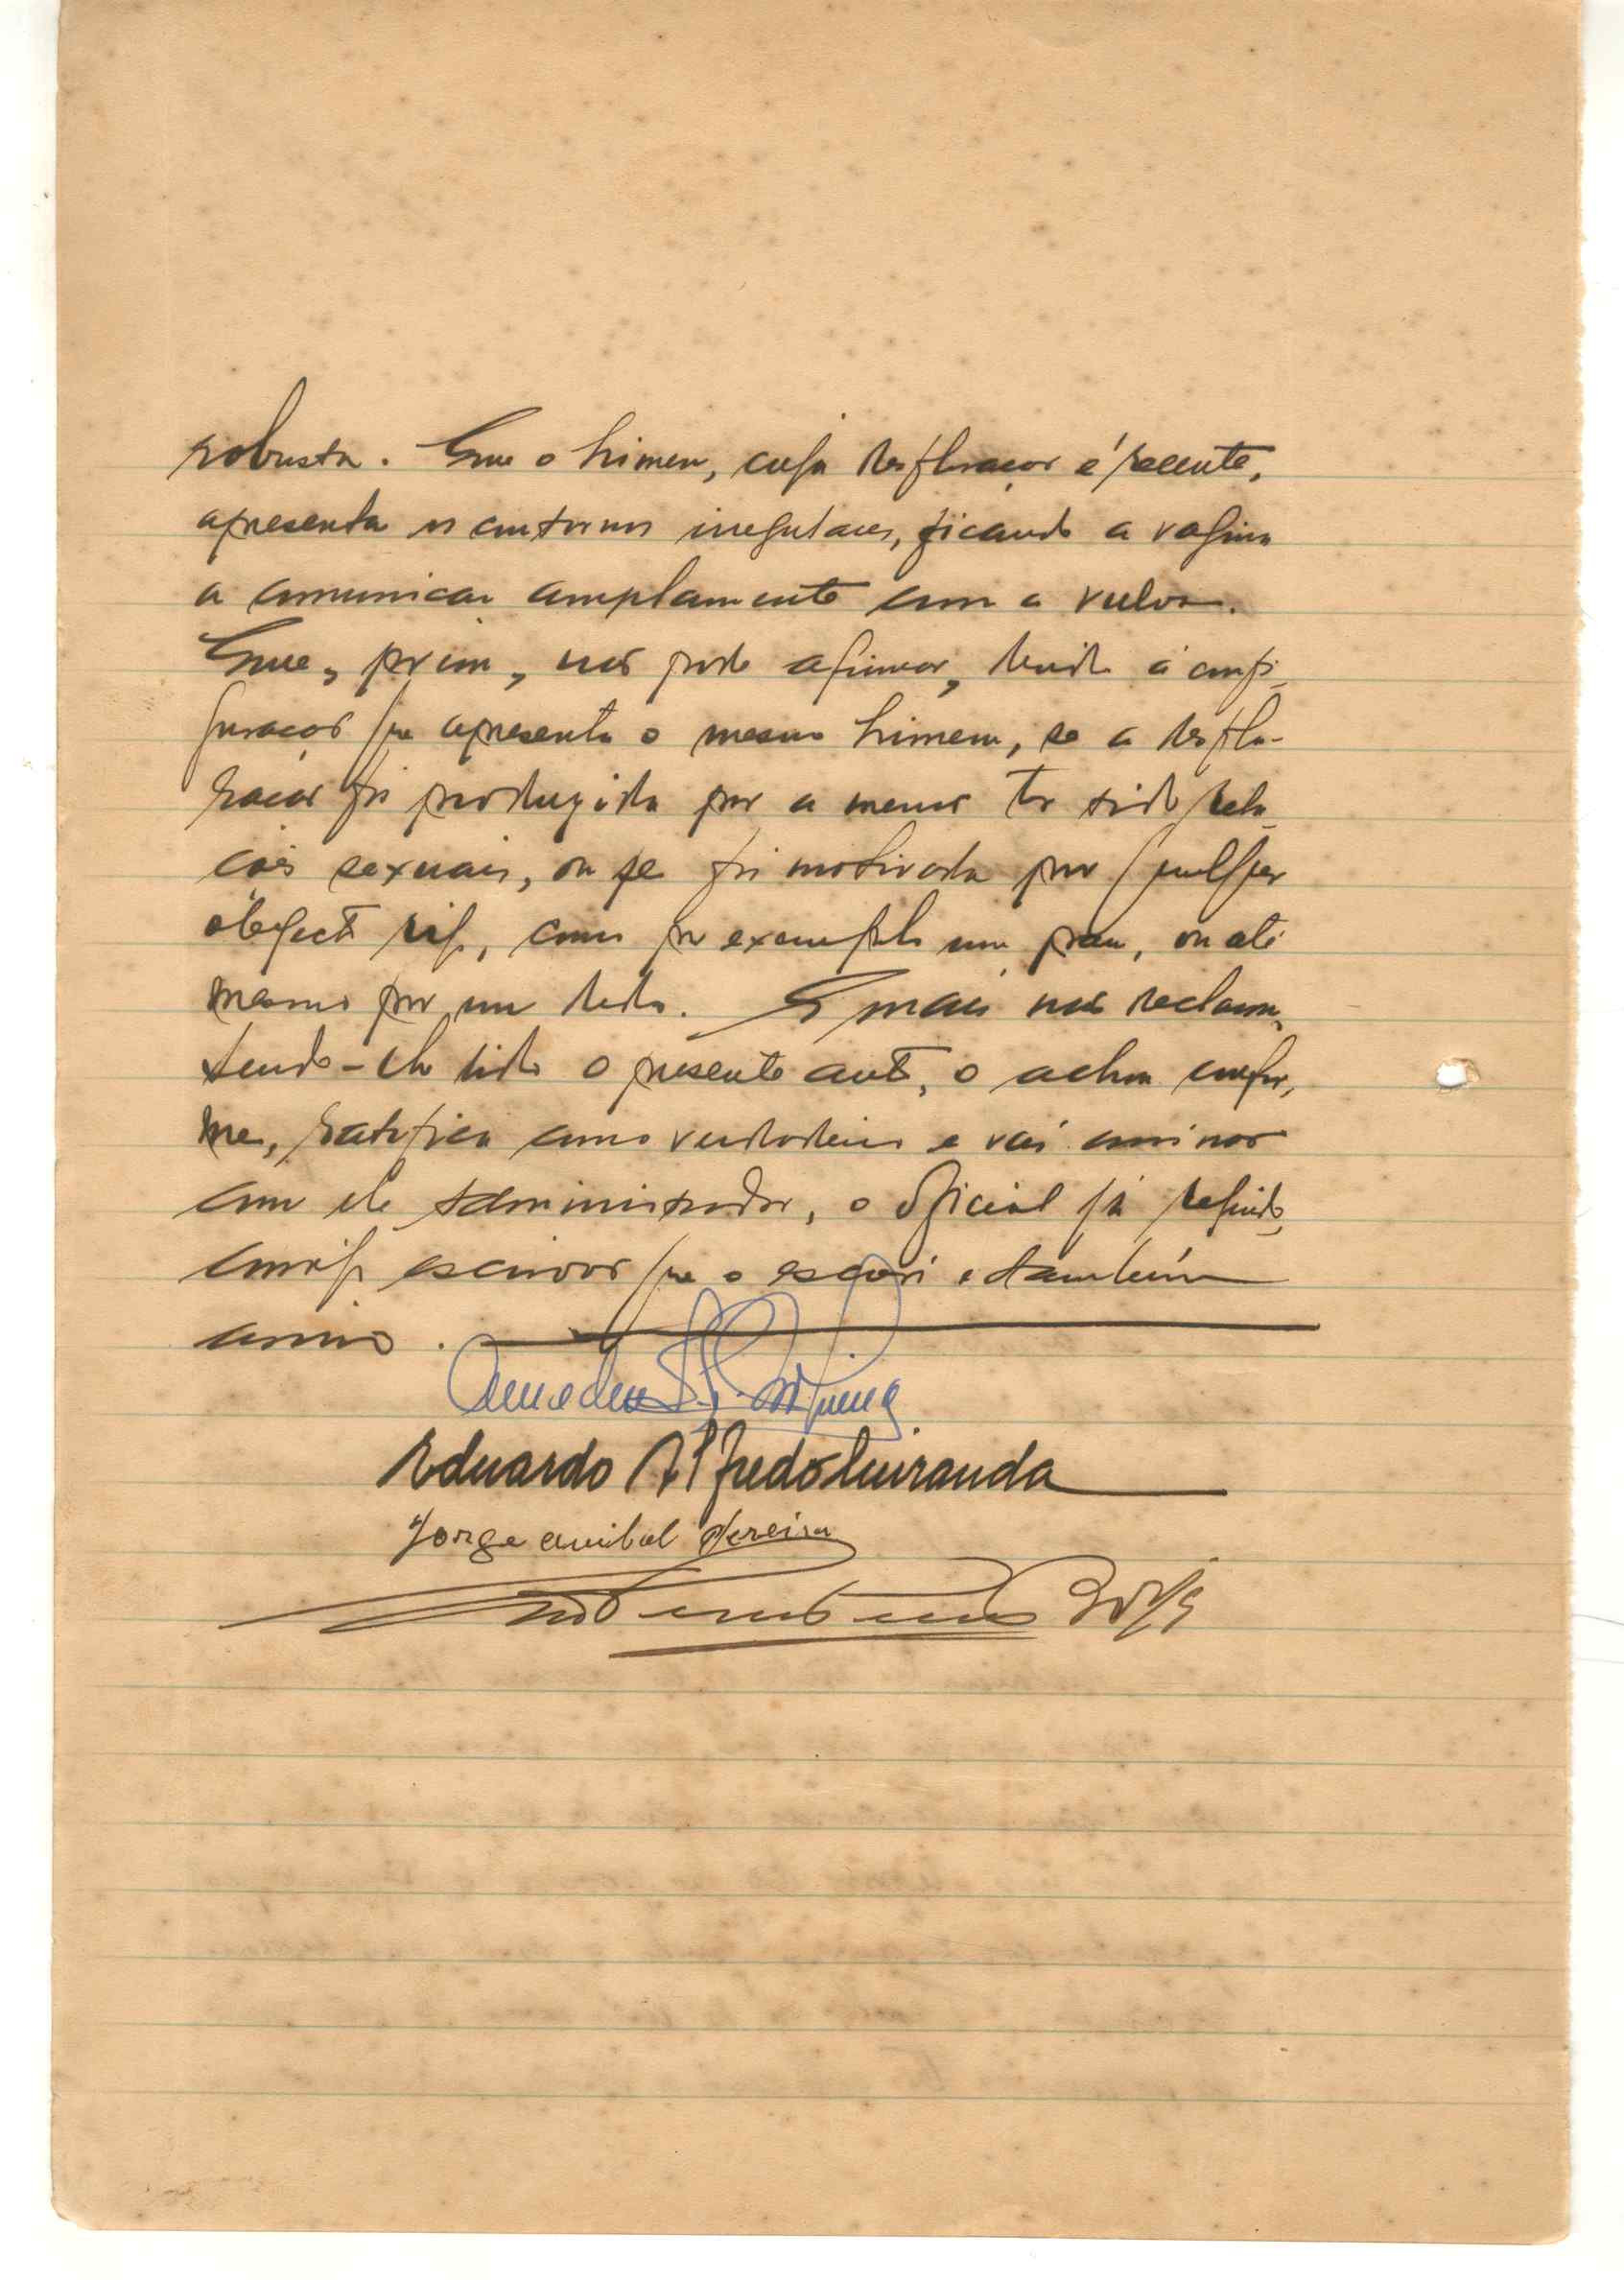 robusta. Que o himen, cuja desfloração é recente,
apresenta os contornos irregulares, ficando a vagina
a comunicar amplamente com a vulva.
Que, porém, não pode afirmar, devido á confi-
guração que apresenta o mesmo himem, se a desflo-
ração foi produzida por a menor ter tido rela-
ções sexuais, ou se foi motivada por qualquer
objecto rijo, como por exemplo um pau, ou até
mesmo por um dedo. E mais não declarou,
sendo-lhe lido o presente auto, o achou confor-
me, ratifica como verdadeiro e vai assinar
com ele Administrador, o oficial já referido,
comigo escrivão que o escrevi e também
assino.
Amadeu
Eduardo Alfredo Miranda
Jorge Anibal Pereira